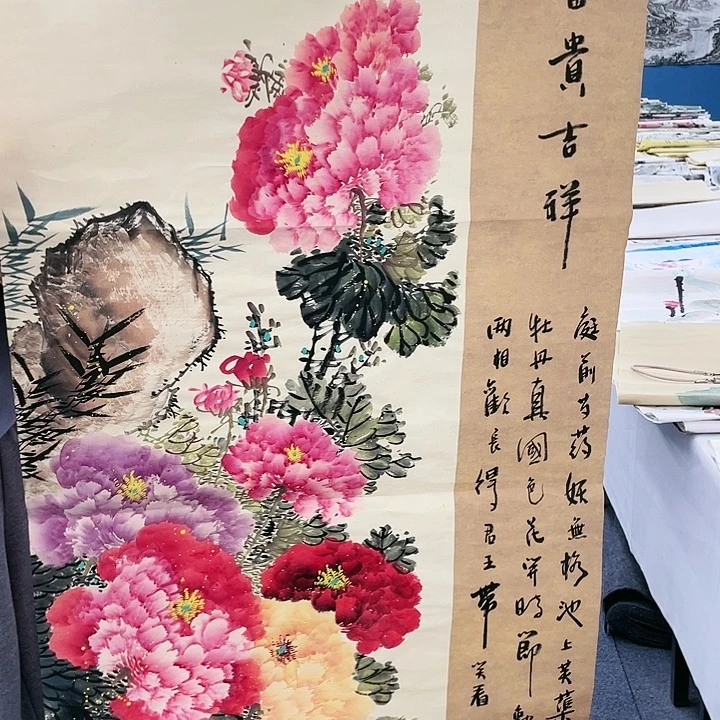 富貴吉祥
庭前芍葯妖無格池上芙蕖
牡丹真國色花開時節動
兩相歡長得君王帶笑看